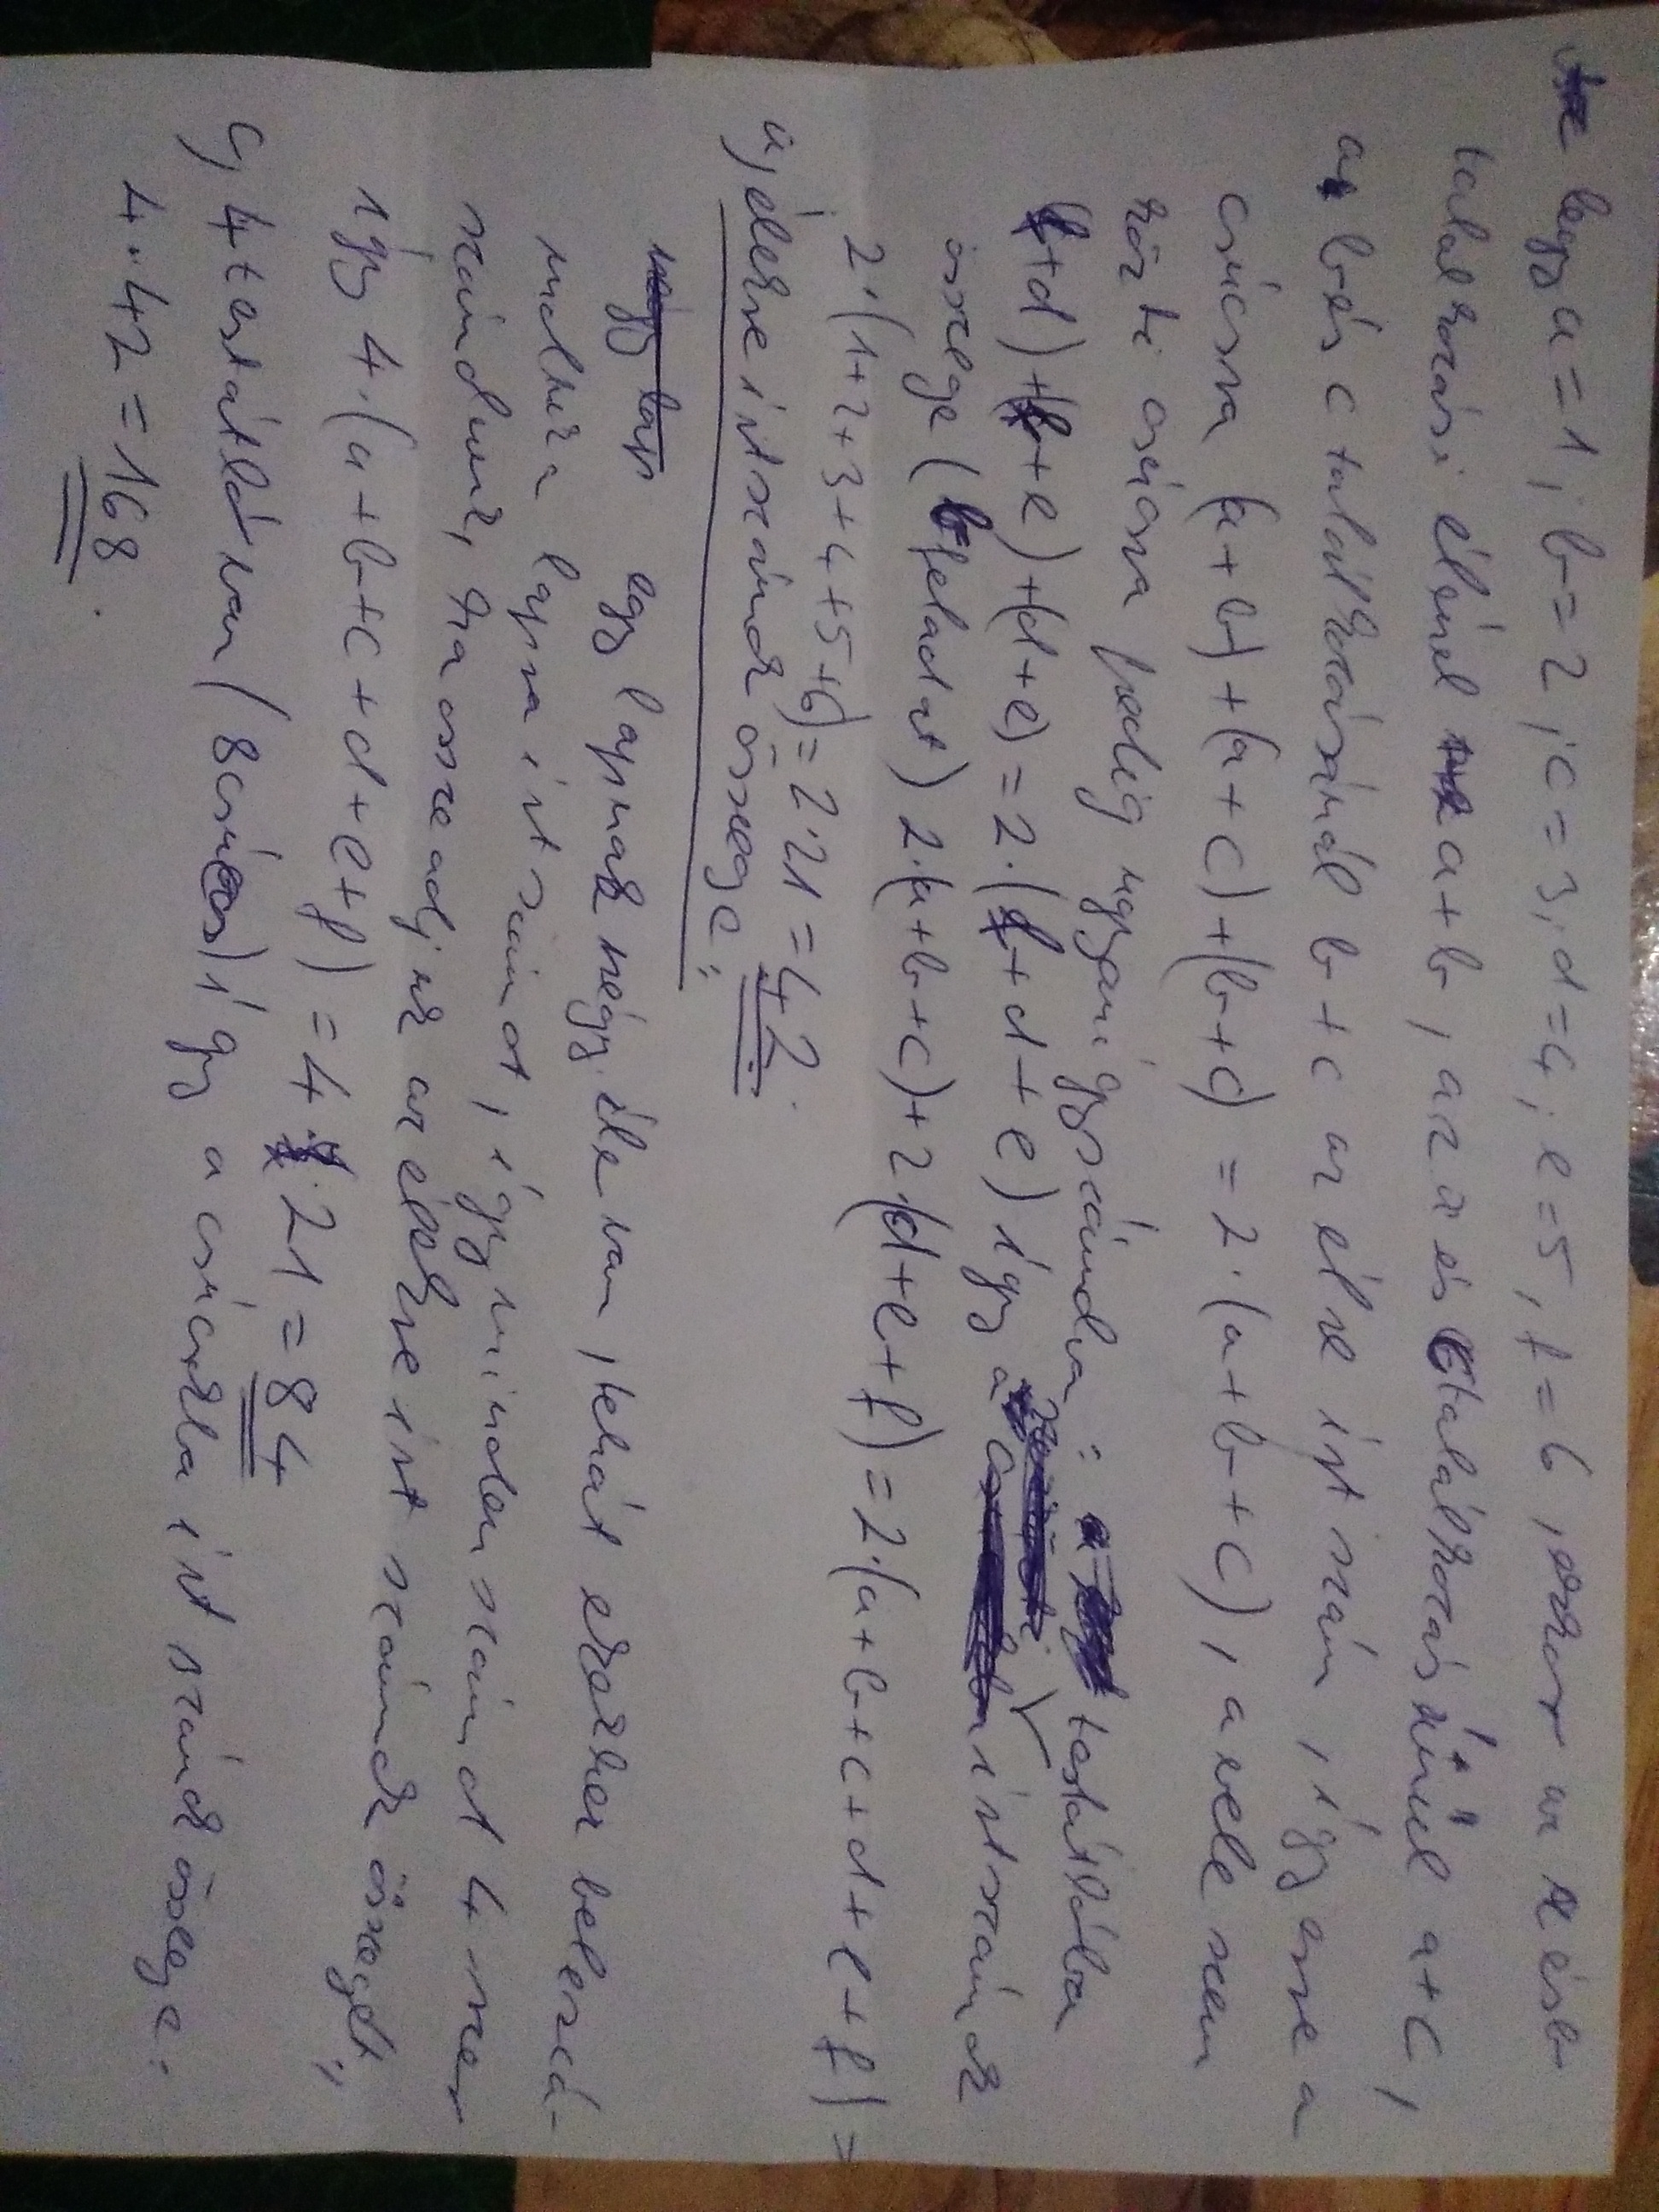 legyen a=1, b=2, c=3, d=4, e=5, f=6, ekkor a és b
találkozási élénél a+b, az a és c találkozásánál a+c,
a b és c találkozásánál b+c az élre írt szám, így erre a
csúcsra (a+b)+(a+c)+(b+c) = 2·(a+b+c), a vele szem
közti csúcsra pedig ugyanígy számolva: testátlóba
+d)+( +e)+(d+e)=2·( +d+e) így a írt számok
összege (b feladat) 2·(a+b+c)+2·(d+e+f)=2·(a+b+c+d+e+f)=
2·(1+2+3+4+5+6)=2·21=42.
a, élekre írt számok összege:
egy lapnak négy éle van, tehát ezekhez beleszá-
moltuk a lapra írt számot, így minden számot 4-szer
számolunk, ha összeadjuk az élekre írt számok összegét,
így 4·(a+b+c+d+e+f)=4·21=84
c, 4 testátló van (8 csúcs) így a csúcsokba írt számok összege:
4·42=168.